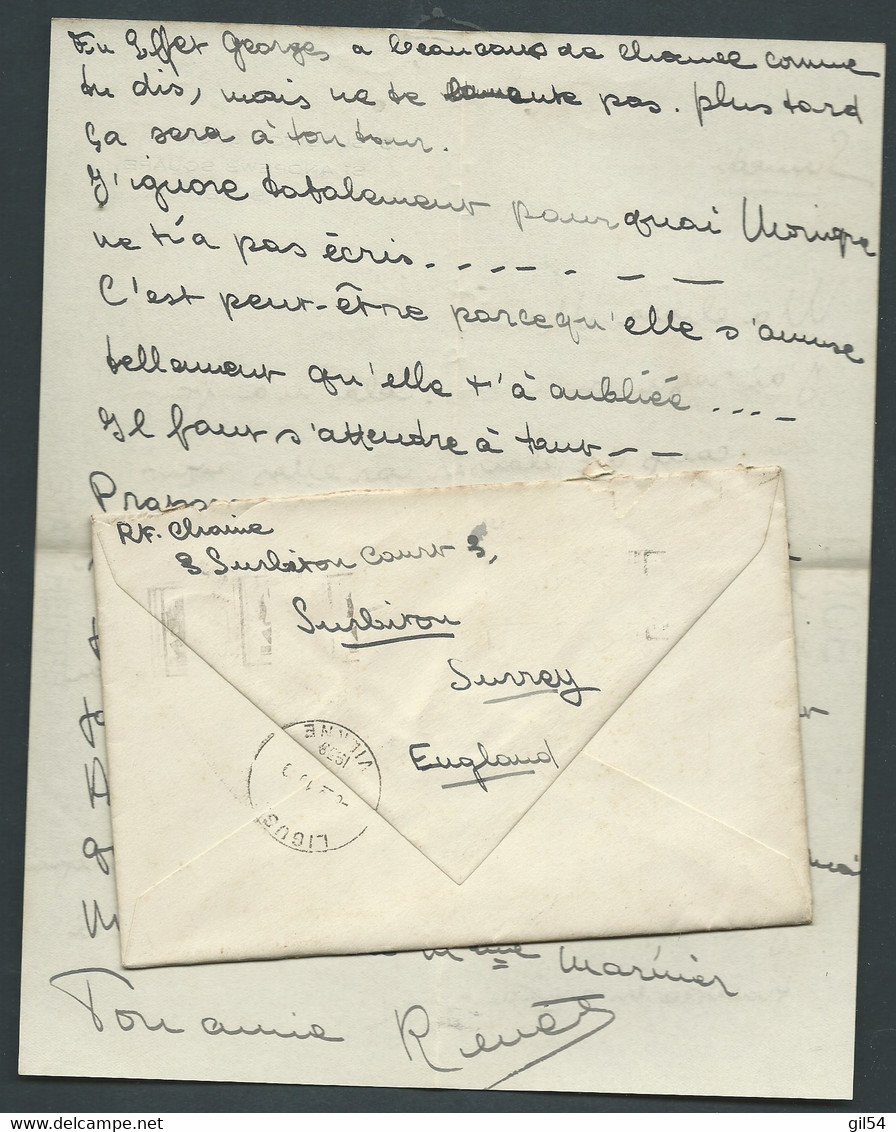 En Effet Georges a beaucoup de chance comme
tu dis, mais ne te lamente pas. plus tard
ça sera à ton tour.
J'ignore totalement pourquoi Monique
ne t'a pas écris
C'est peut-être parcequ'elle s'amuse
tellement qu'elle t'à oubliée
Il faut s'attendre à tout
R.F. Chaine
3 Surbiton Court 3,
Surbiton
Surrey
England
VIENNE
1938
LIGUG
Mme Marinier
Ton amie Renée
www.delcampe.net
gil54